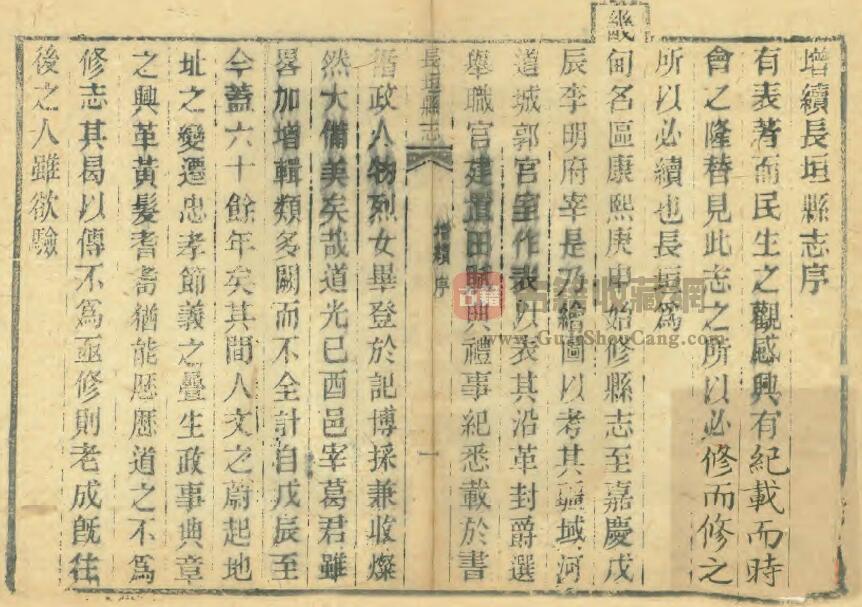 增續長垣縣志序
有表著而民生之觀感興有紀載而時
會之隆替見此志之所以必修而修之
所以必續也長垣為
畿
甸名區康熙庚申始修縣志至嘉慶戊
辰李明府宰是乃繪圖以考其疆域河
道城郭宮室作表以表其沿革封爵選
舉職官建置田賦典禮事紀悉載於書
長垣縣志
增續 序
一
循政人物烈女畢登於記博採兼收燦
然大備美矣哉道光已酉邑宰葛君雖
畧加增輯類多闕而不全計自戊辰至
今蓋六十餘年矣其間人文之蔚起地
址之變遷忠孝節義之疊生政事典章
之興革黃髮耆耈猶能歷歷道之不為
修志其曷以傳不為亟修則老成旣往
後之人雖欲驗
古籍
古籍收藏網
www.GujiShouCang.com